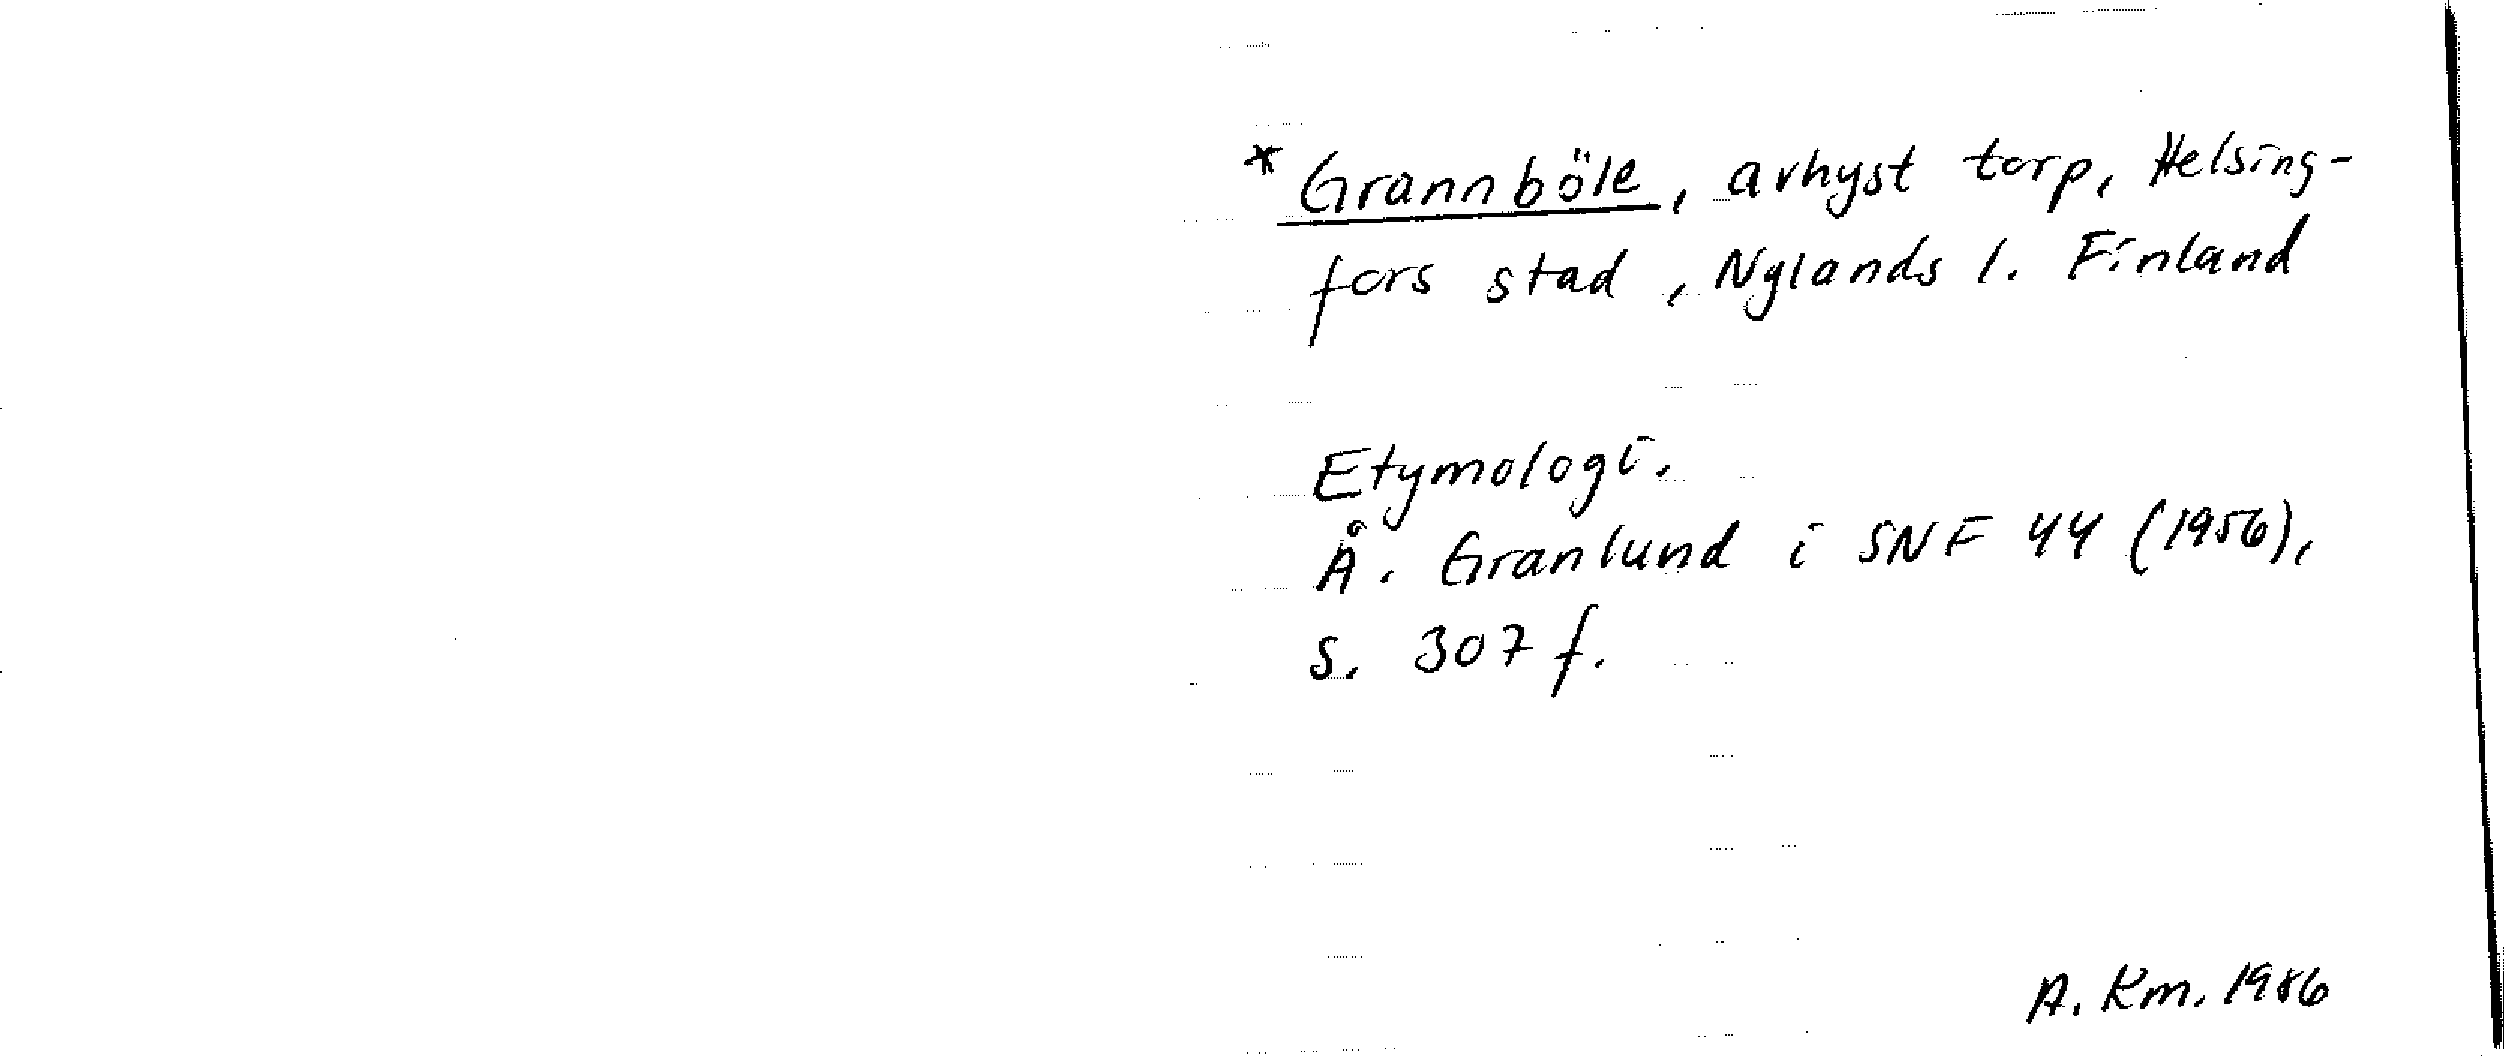 * Grannböle, avhyst torp, Helsing-
fors stad, Nylands l. Finland
Etymologi.
Å. Granlund i SNF 44 (1956),
s. 307 f.
A. Km. 1986